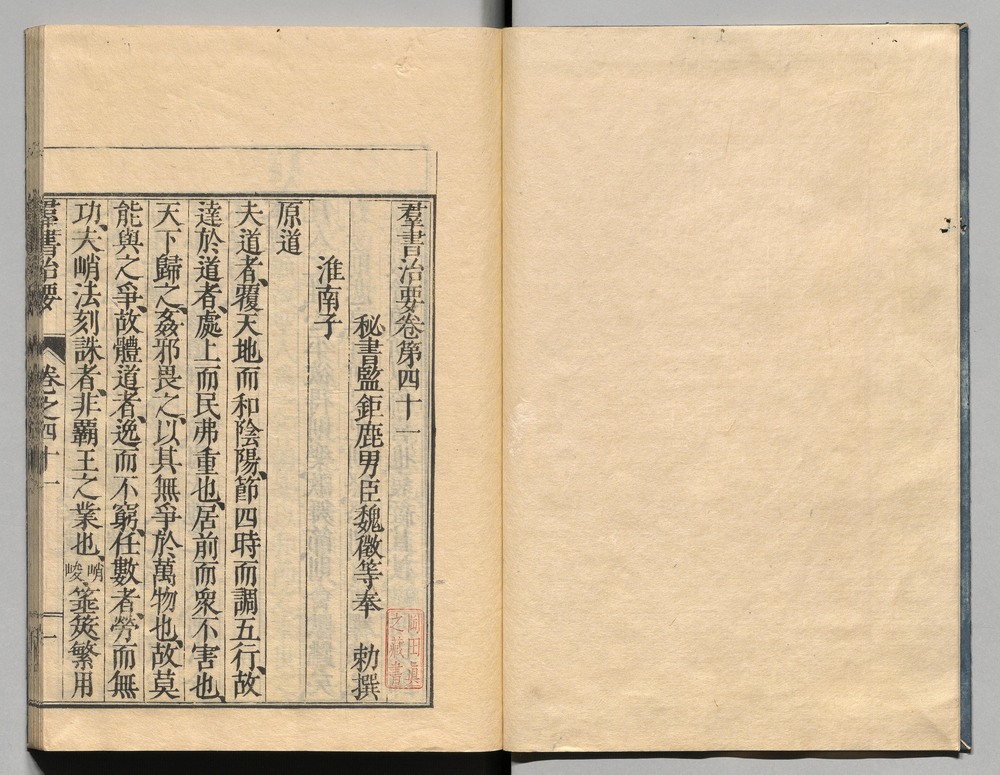 羣書治要卷第四十一
秘書監鉅鹿男臣魏徵等奉　勅撰
淮南子
原道
夫道者、覆天地而和陰陽、節四時而調五行、故
達於道者、處上而民弗重也、居前而衆不害也、
天下歸之、姦邪畏之、以其無爭於萬物也、故莫
能與之爭、故體道者、逸而不窮、任數者、勞而無
功、夫峭法刻誅者、非霸王之業也、峭峻箠筴繁用
羣書治要 卷之四十一 一
岡田眞
之藏書